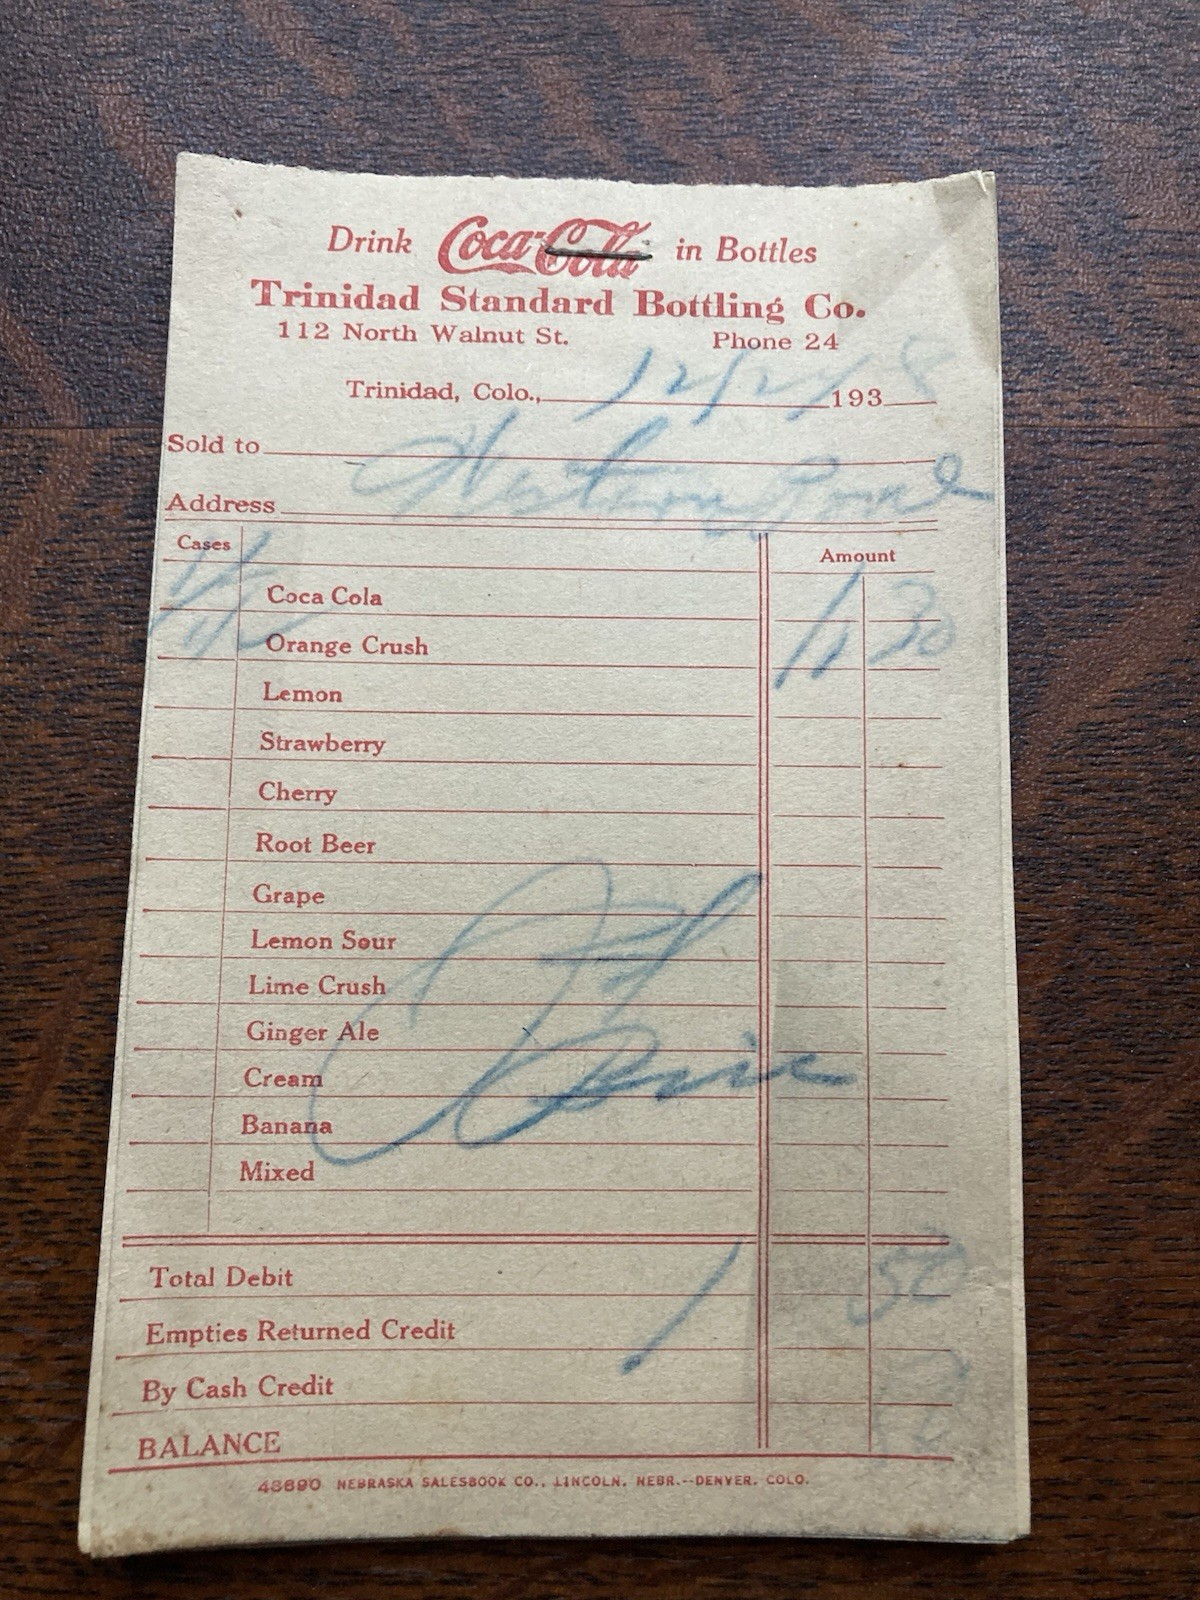 Drink Coca-Cola in Bottles
Trinidad Standard Bottling Co.
112 North Walnut St. Phone 24
Trinidad, Colo., 12/21/ 193 8
Sold to
Address
Cases Amount
Coca Cola
Orange Crush
Lemon
Strawberry
Cherry
Root Beer
Grape
Lemon Sour
Lime Crush
Ginger Ale
Cream
Banana
Mixed
Total Debit
Empties Returned Credit 1 50
By Cash Credit
BALANCE
48690 NEBRASKA SALESBOOK CO., LINCOLN, NEBR.--DENVER, COLO.